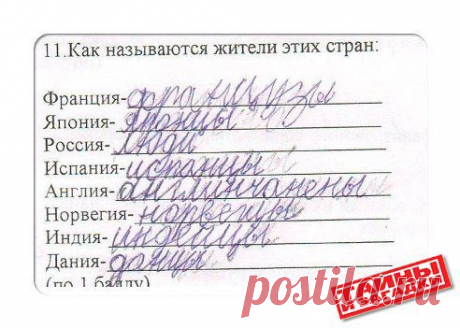 11.Как называются жители этих стран:
Франция-французы
Япония-японцы
Россия-люди
Испания-испанцы
Англия-англинчанены
Норвегия-норвегцы
Индия-индейцы
Дания-данцы
(по 1 баллу)
ТАЙНЫ
И ЗАГАДКИ
postila.ru